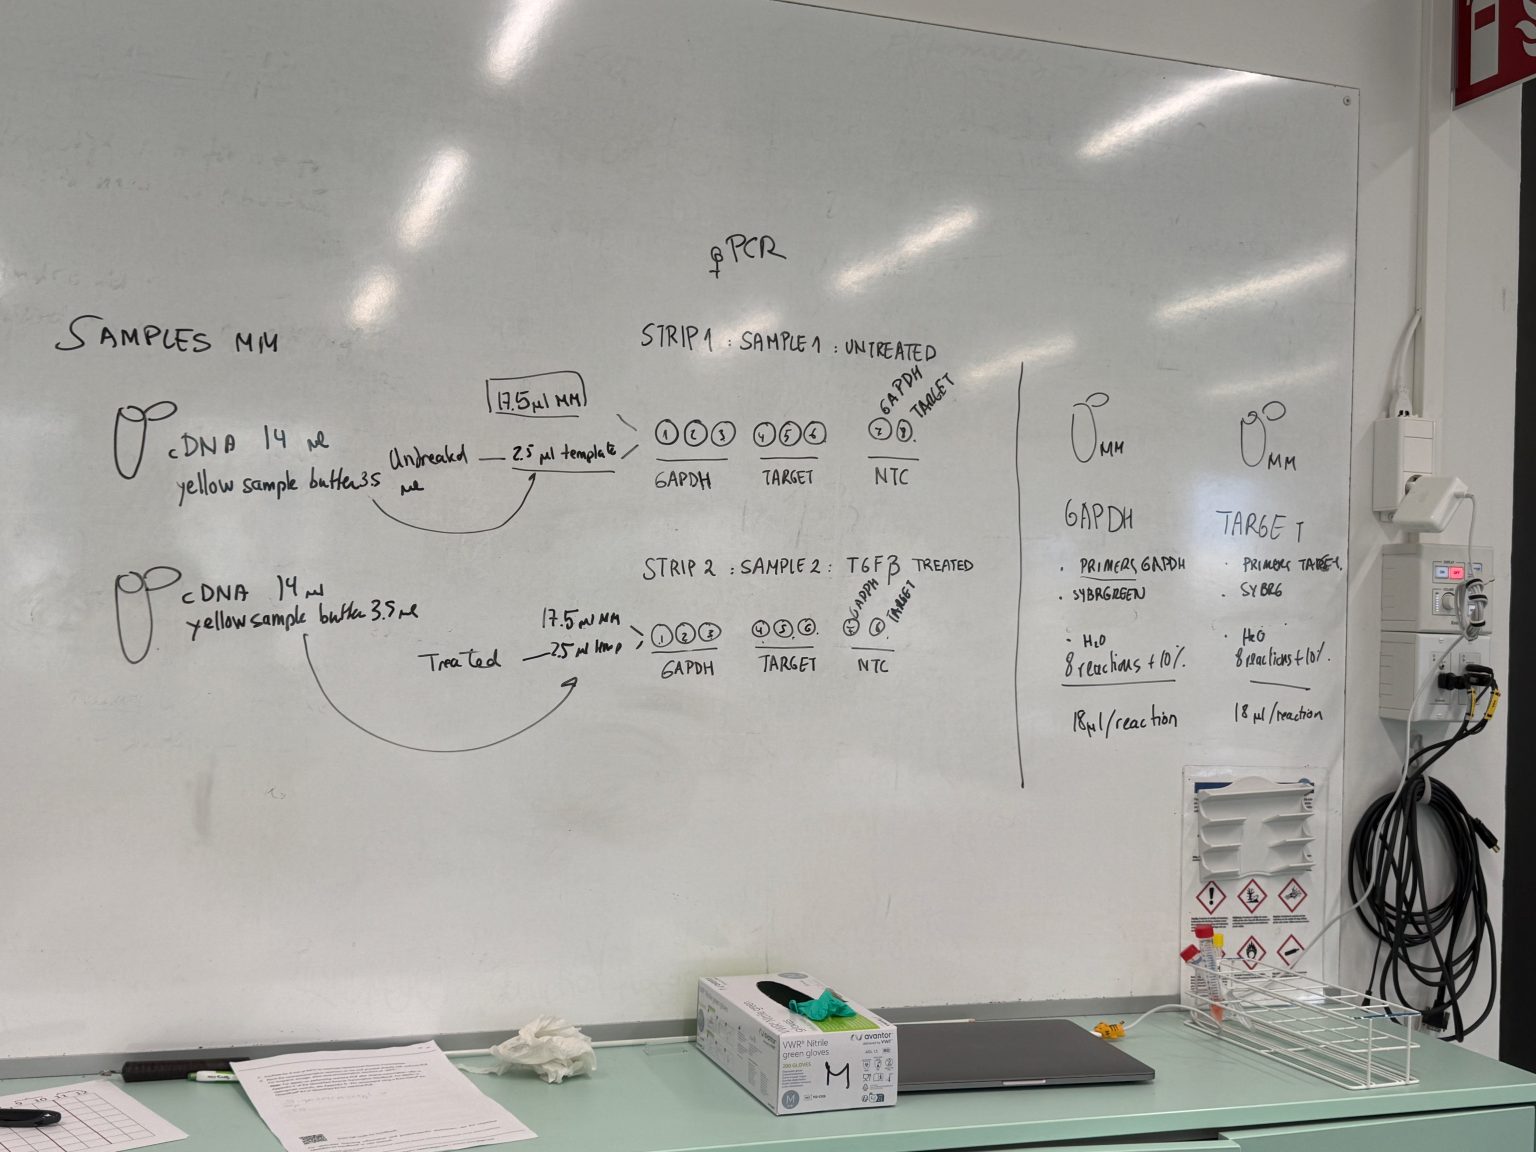 qPCR
SAMPLES MM
cDNA 14 µl
yellow sample buffer 35 µl
Untreated
17.5 µl MM
2.5 µl template
STRIP 1 : SAMPLE 1 : UNTREATED
1 2 3 4 5 6 7 8
GAPDH
TARGET
GAPDH TARGET NTC
cDNA 14 µl
yellow sample buffer 3.5 µl
Treated
17.5 µl MM
2.5 µl
STRIP 2 : SAMPLE 2 : TGFβ TREATED
GADPH
TARGET
1 2 3 4 5 6
GAPDH TARGET NTC
MM
GAPDH
· PRIMERS GAPDH
· SYBRGREEN
· H2O
8 reactions + 10%.
18µl/reaction
MM
TARGET
· PRIMERS TARGET.
· SYBRG
· H2O
8 reactions + 10%.
18 µl/reaction
VWR® Nitrile
green gloves
200 GLOVES
M
M
avantor